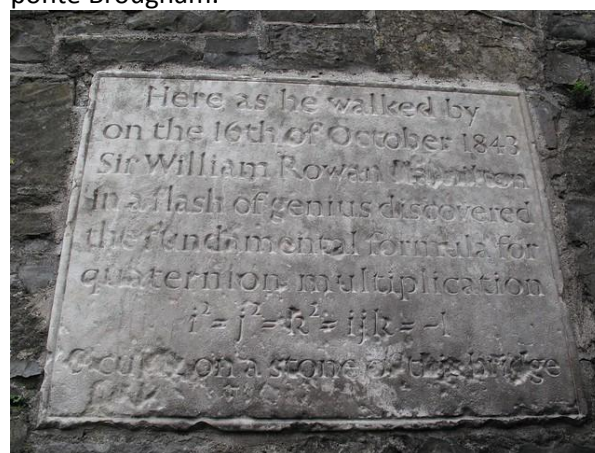 ponte Brougham.
Here as he walked by
on the 16th of October 1843
Sir William Rowan Hamilton
in a flash of genius discovered
the fundamental formula for
quaternion multiplication
i² = j² = k² = ijk = -1
& cut it on a stone of this bridge